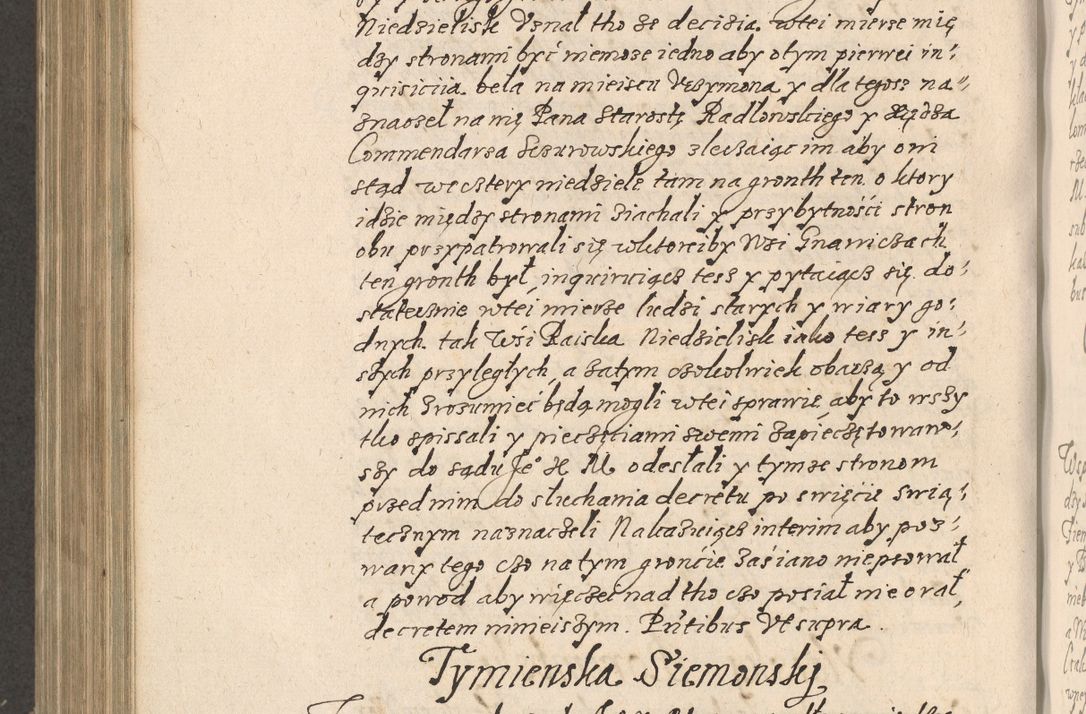 Niedzielisk Vznał tho że decizia wtei mierze mię
dzy stronami być niemoże iedno aby otym pierwei in⸗
qicisiciia beła na mieiscu Vczymona y dla tegosz na⸗
znaoseł na nię Pana Starostę Radłowskiego y Xiędza
Commendarza Sczurowskiego zleczaiąc im aby oni
stąd we cztery niedziele tam na gronth ten o ktory
idzie między stronami ziachali y przybytności stron
obu przypatrowali się wktoreiby Wsi Gnawiczach
ten gronth był, inquiruiącz tesz y pytaiącz się do⸗
statecznie wtei mierze ludzi starych y wiary go⸗
dnych tak Wsi Raiska Niedzielisk iako tesz y in⸗
szych przyległych, a zatym czokolwiek obaczą y od
nich Zrozumieć będą mogli wtei sprawie aby to wszy
tko spissali y pieczęciami swemi zapieczętowaw⸗
szy do sądu Je° X M. odesłali y tymże stronom
przed nim do słuchania decretu po swięcie swią⸗
tecznym naznaczeli Nakazuiącz interim aby poz⸗
wany tego czo na tym gronćie Zasiano niepsował
a powod aby więczei nad tho czo posiał nie orał,
decretem ninieiszym. Pntibus Vt supra.
Tymienska Siemonskj